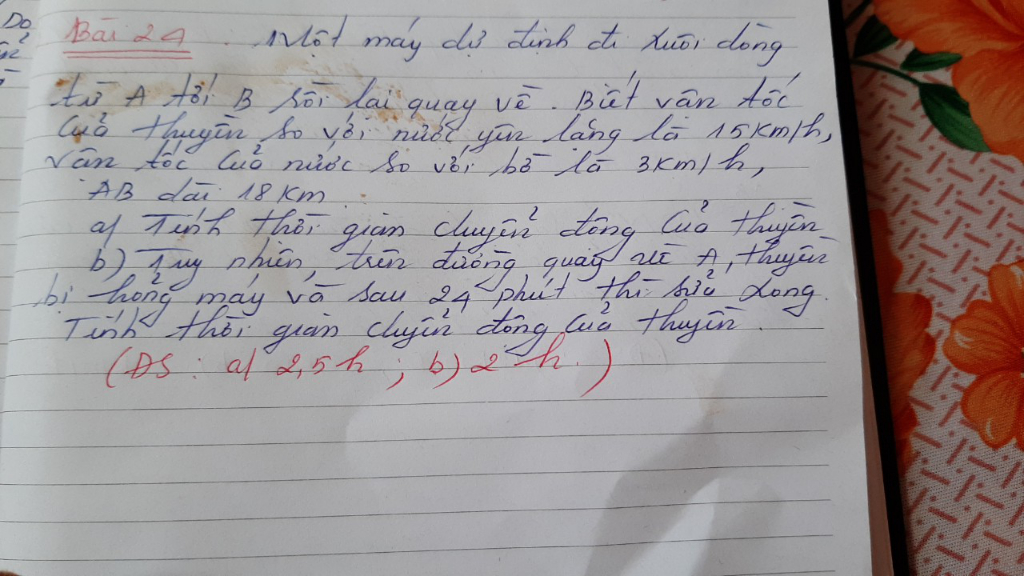 Do
Bài 24. Một máy dự định đi xuôi dòng
từ A tới B rồi lại quay về. Biết vận tốc
của thuyền so với nước yên lặng là 15km/h,
vận tốc của nước so với bờ là 3km/h,
AB dài 18km
a) Tính thời gian chuyển động của thuyền
b) Tuy nhiên, trên đường quay về A, thuyền
bị hỏng máy và sau 24 phút thì sửa xong.
Tính thời gian chuyển động của thuyền.
(ĐS : a) 2,5h ; b) 2 h.)